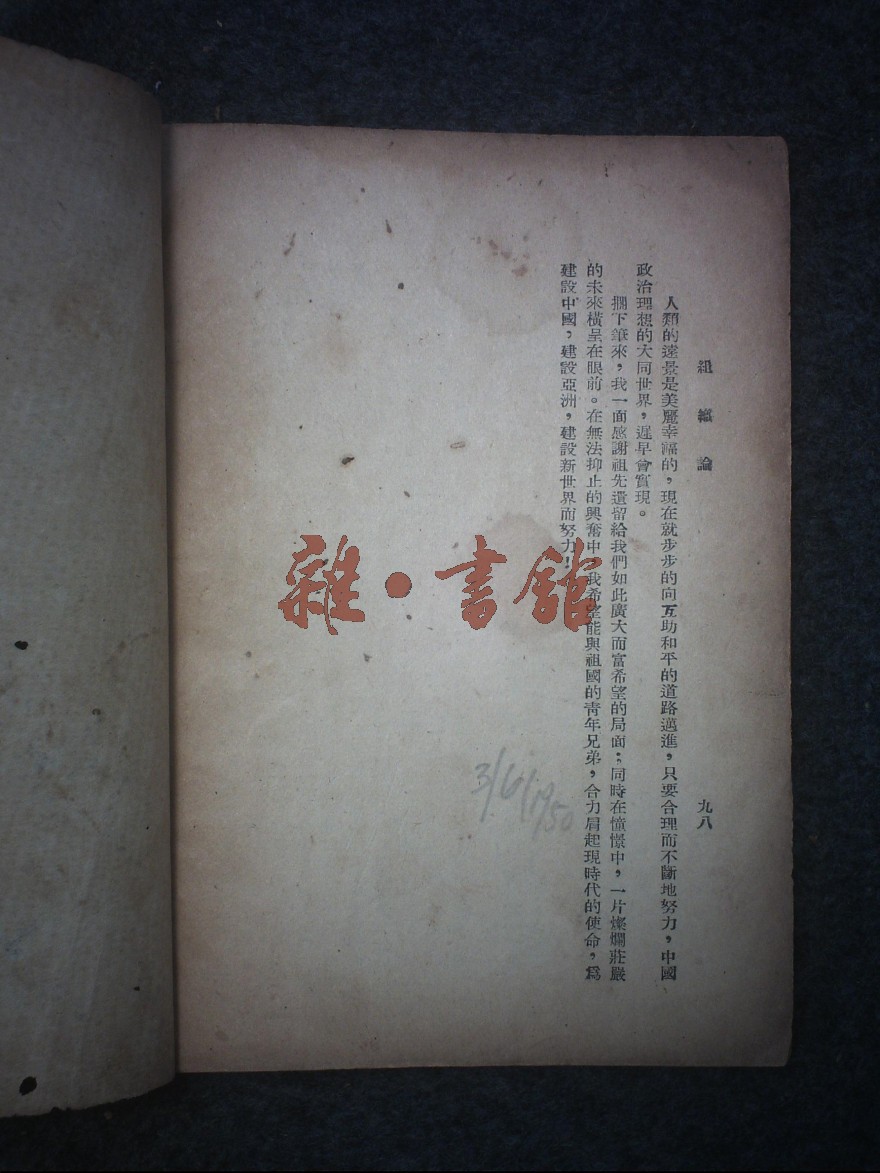 組織論
九八
人類的遠景是美麗幸福的，現在就步步的向互助和平的道路邁進，只要合理而不斷地努力，中國
政治理想的大同世界，遲早會實現。
擱下筆來，我一面感謝祖先遺留給我們如此廣大而富希望的局面；同時在憧憬中，一片燦爛莊嚴
的未來橫呈在眼前。在無法抑止的興奮中，我希望能與祖國的青年兄弟，合力肩起現時代的使命，為
建設中國，建設亞洲，建設新世界而努力！
3/6/1950
雜·書館